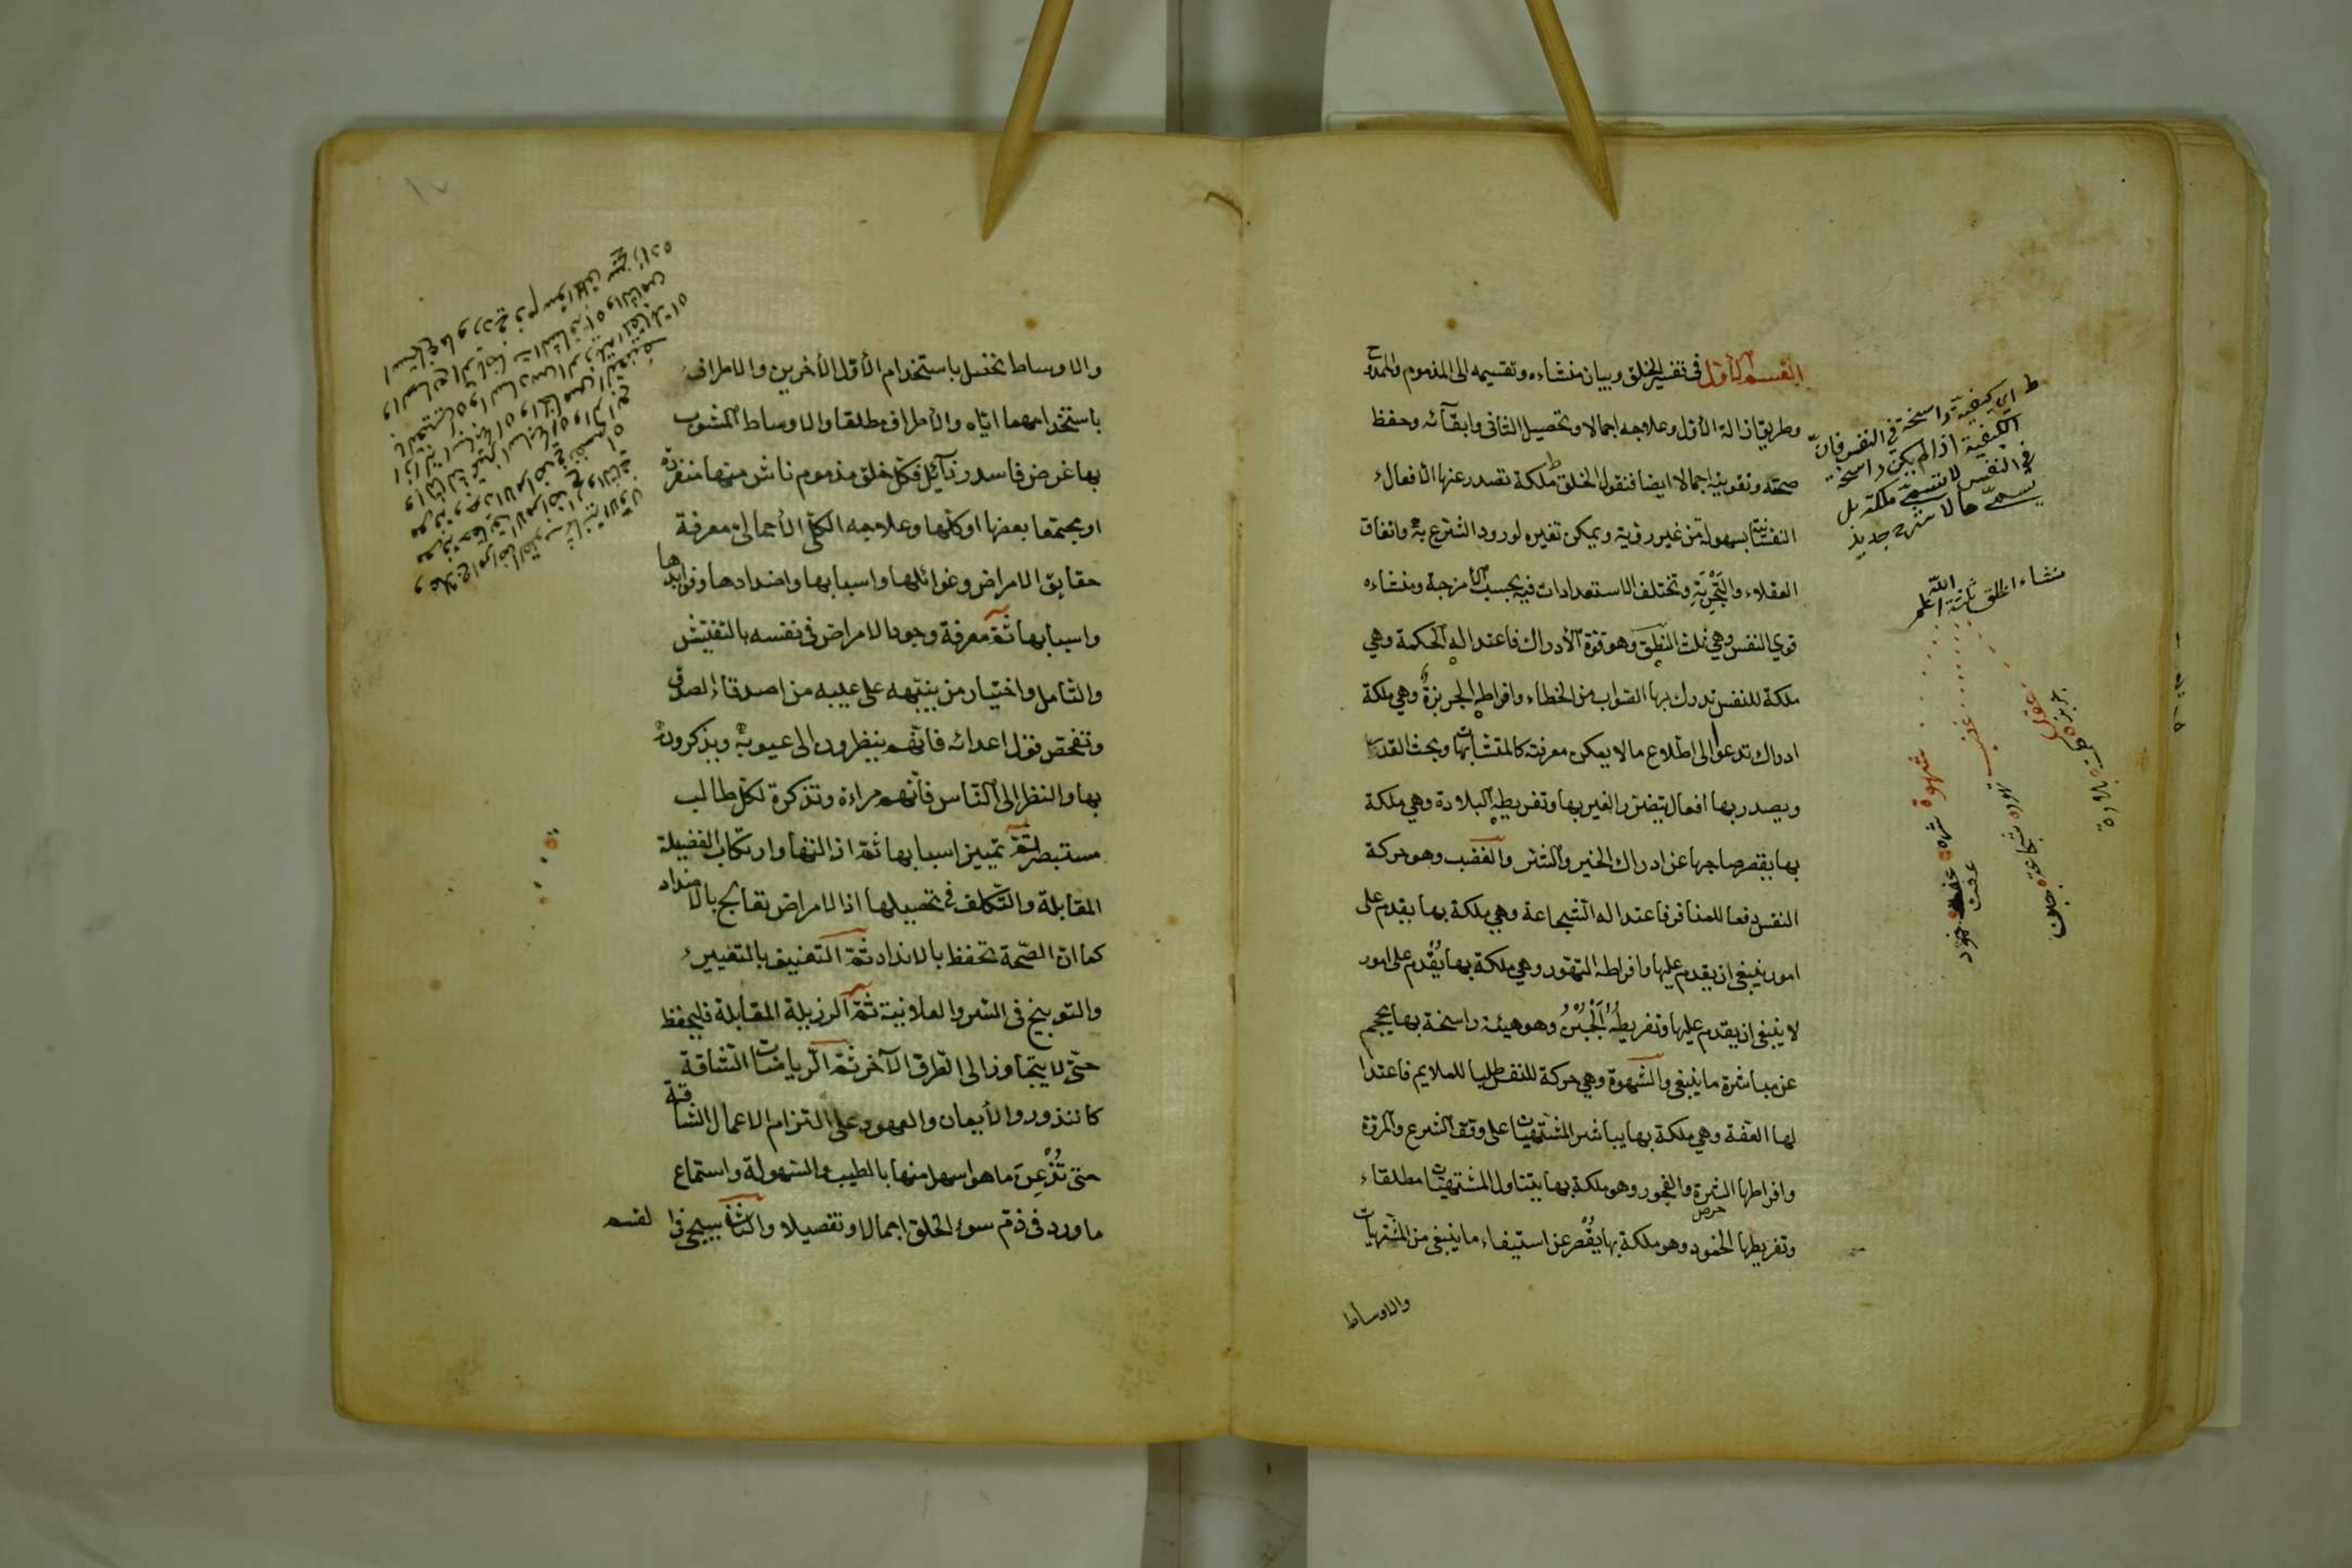 القسم الأول في تفسير الخلق وبيان منشاءه وتقسيمه الى المذموم والممدوح
وطريق ازالة الأول وعلاجه اجمالا وتحصيل الثاني وابقآئه وحفظ
صحته وتقويته اجمالا ايضا فنقول الخلق ملكة تصدر عنها الأفعال
النفسانية بسهولة من غير روية ويمكن تغييره لورود الشرع به واتفاق
العقلاء والتَّجْرِبَةِ وتختلف الاستعدادات فيه بحسب الأمزجة ومنشاءه
قوي النفس وهي ثلث النطق وهو قوة الأدراك فاعتداله الحكمة وهي
ملكة للنفس تدرك بها الصواب من الخطاء وافراطه الجربزة وهي ملكة
ادراك تدعوا الى اطلاع ما لا يمكن معرفته كالمتشابهات وبحث القدر
ويصدر بها افعال يتضرر الغير بها وتفريطه البلادة وهي ملكة
بها يقصر صاحبها عن ادراك الخير والشر والغضب وهو حركة
النفس دفعا للمنافر فاعتداله الشجاعة وهي ملكة بها يقدم على
امور ينبغي ان يقدم عليها وافراطه التهور وهي ملكة بها يُقْدِم على امور
لا ينبغي ان يقدم عليها وتفريطُهُ اَلْجُبْنُ وهو هيئة راسخة بها يحجم
عن مباشرة ما ينبغي والشهوة وهي حركة للنفس طلبا للملايم فاعتدا
لها العفة وهي ملكة بها يباشر المشتهيات على وفق الشرع والمروة
وافراطها الشره والفجور وهو ملكة بها يتناول المشتهيات مطلقا
حرص
وتفريطها الخمود وهو ملكة بها يُقْصر عن استيفاء ما ينبغي من المشتهيات
والاوساط
ط اي كيفية راسخة في النفس فانّ
الكيفية اذا لم يكن راسخة
في النفس لا تسمى ملكة بل
يسمى حالا
منشاء الخلق ثلثة
الله اعلم
عقل
جربزه
بلادة
غضب
تهور شجاعة جبن
شهوة
شره عفة خمود
عفت
والاوساط تحصل باستخدام الأول الأخرين والاطراف
باستخدامهما اياه والأطراف مطلقا والاوساط المشوب
بها غرض فاسد رذآئل فكل خلق مذموم ناش منها منفردة
او مجتمعا بعضها او كلها وعلاجه الكلى الأجمالى معرفة
حقايق الامراض وغوائلها واسبابها واضدادها وفوايدها
واسبابها ثمّ معرفة وجود الامراض في نفسه بالتفتيش
والتأمل واختيار من ينبهه على عيبه من اصدقاء الصدق
وتفحص قول اعدائه فانّهم ينظرون الى عيوبه ويذكرونه
بها والنظر الى الناس فأنهم مراءة وتذكرة لكل طالب
مستبصر ثمّ تمييز اسبابها ثمّ ازالتها وارتكاب الفضيلة
المقابلة والتكلف في تحصيلها اذ الامراض تعالج بالاضداد
كما ان الصّحة تحفظ بالانداد ثمّ التعنيف بالتعيير
والتوبيخ في السر والعلانية ثمّ الرزيلة المقابلة فليحفظ
حتّى لا يتجاوز الى الطرف الآخر ثمّ الرياضات الشاقة
كالنذور والأيمان والعهود على التزام الاعمال الشاقة
حتى تُذْعِنَ ما هو اسهل منها بالطيب والسهولة واستماع
ما ورد في ذم سوء الخلق اجمالا وتفصيلا والثاني سيجئ في القسم